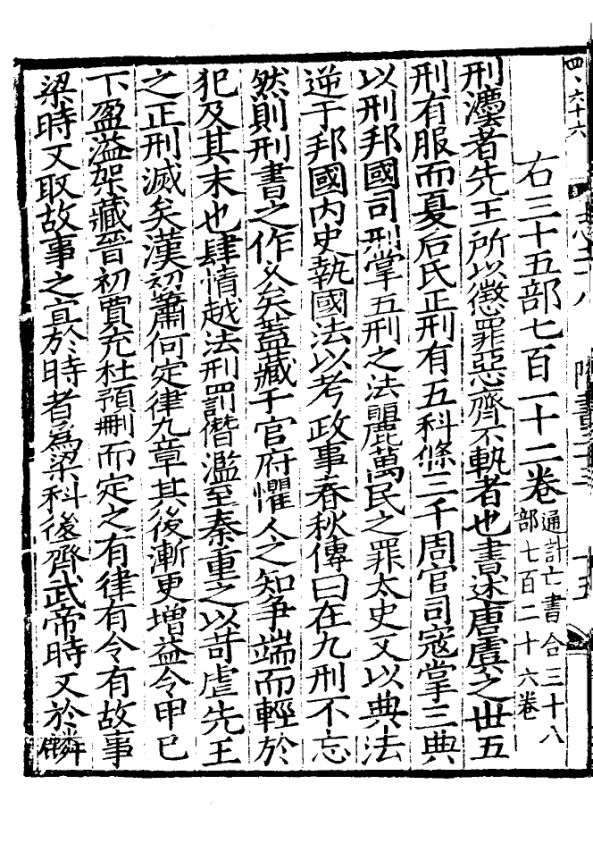 四、六十六
志二十八 隋書三十三 十五
右三十五部七百一十二卷通計亡書合三十八部七百二十六卷
刑灋者先王所以懲罪惡齊不軌者也書述唐虞之世五
刑有服而夏后氏正刑有五科條三千周官司寇掌三典
以刑邦國司刑掌五刑之法麗萬民之罪太史又以典法
逆于邦國內史執國法以考政事春秋傳曰在九刑不忘
然則刑書之作久矣蓋藏于官府懼人之知爭端而輕於
犯及其末也肆情越法刑罰僭濫至秦重之以苛虐先王
之正刑滅矣漢初蕭何定律九章其後漸更增益令甲已
下盈溢架藏晉初賈充杜預刪而定之有律有令有故事
梁時又取故事之宜於時者為梁科後齊武帝時又於麟